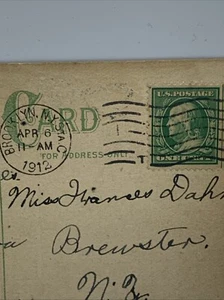 BROOKLYN, N.Y. STA. C.
APR 6
11-AM
1912
CARD
FOR ADDRESS ONLY.
U.S. POSTAGE
ONE
Miss Frances Dahn
Brewster.
N.Y.